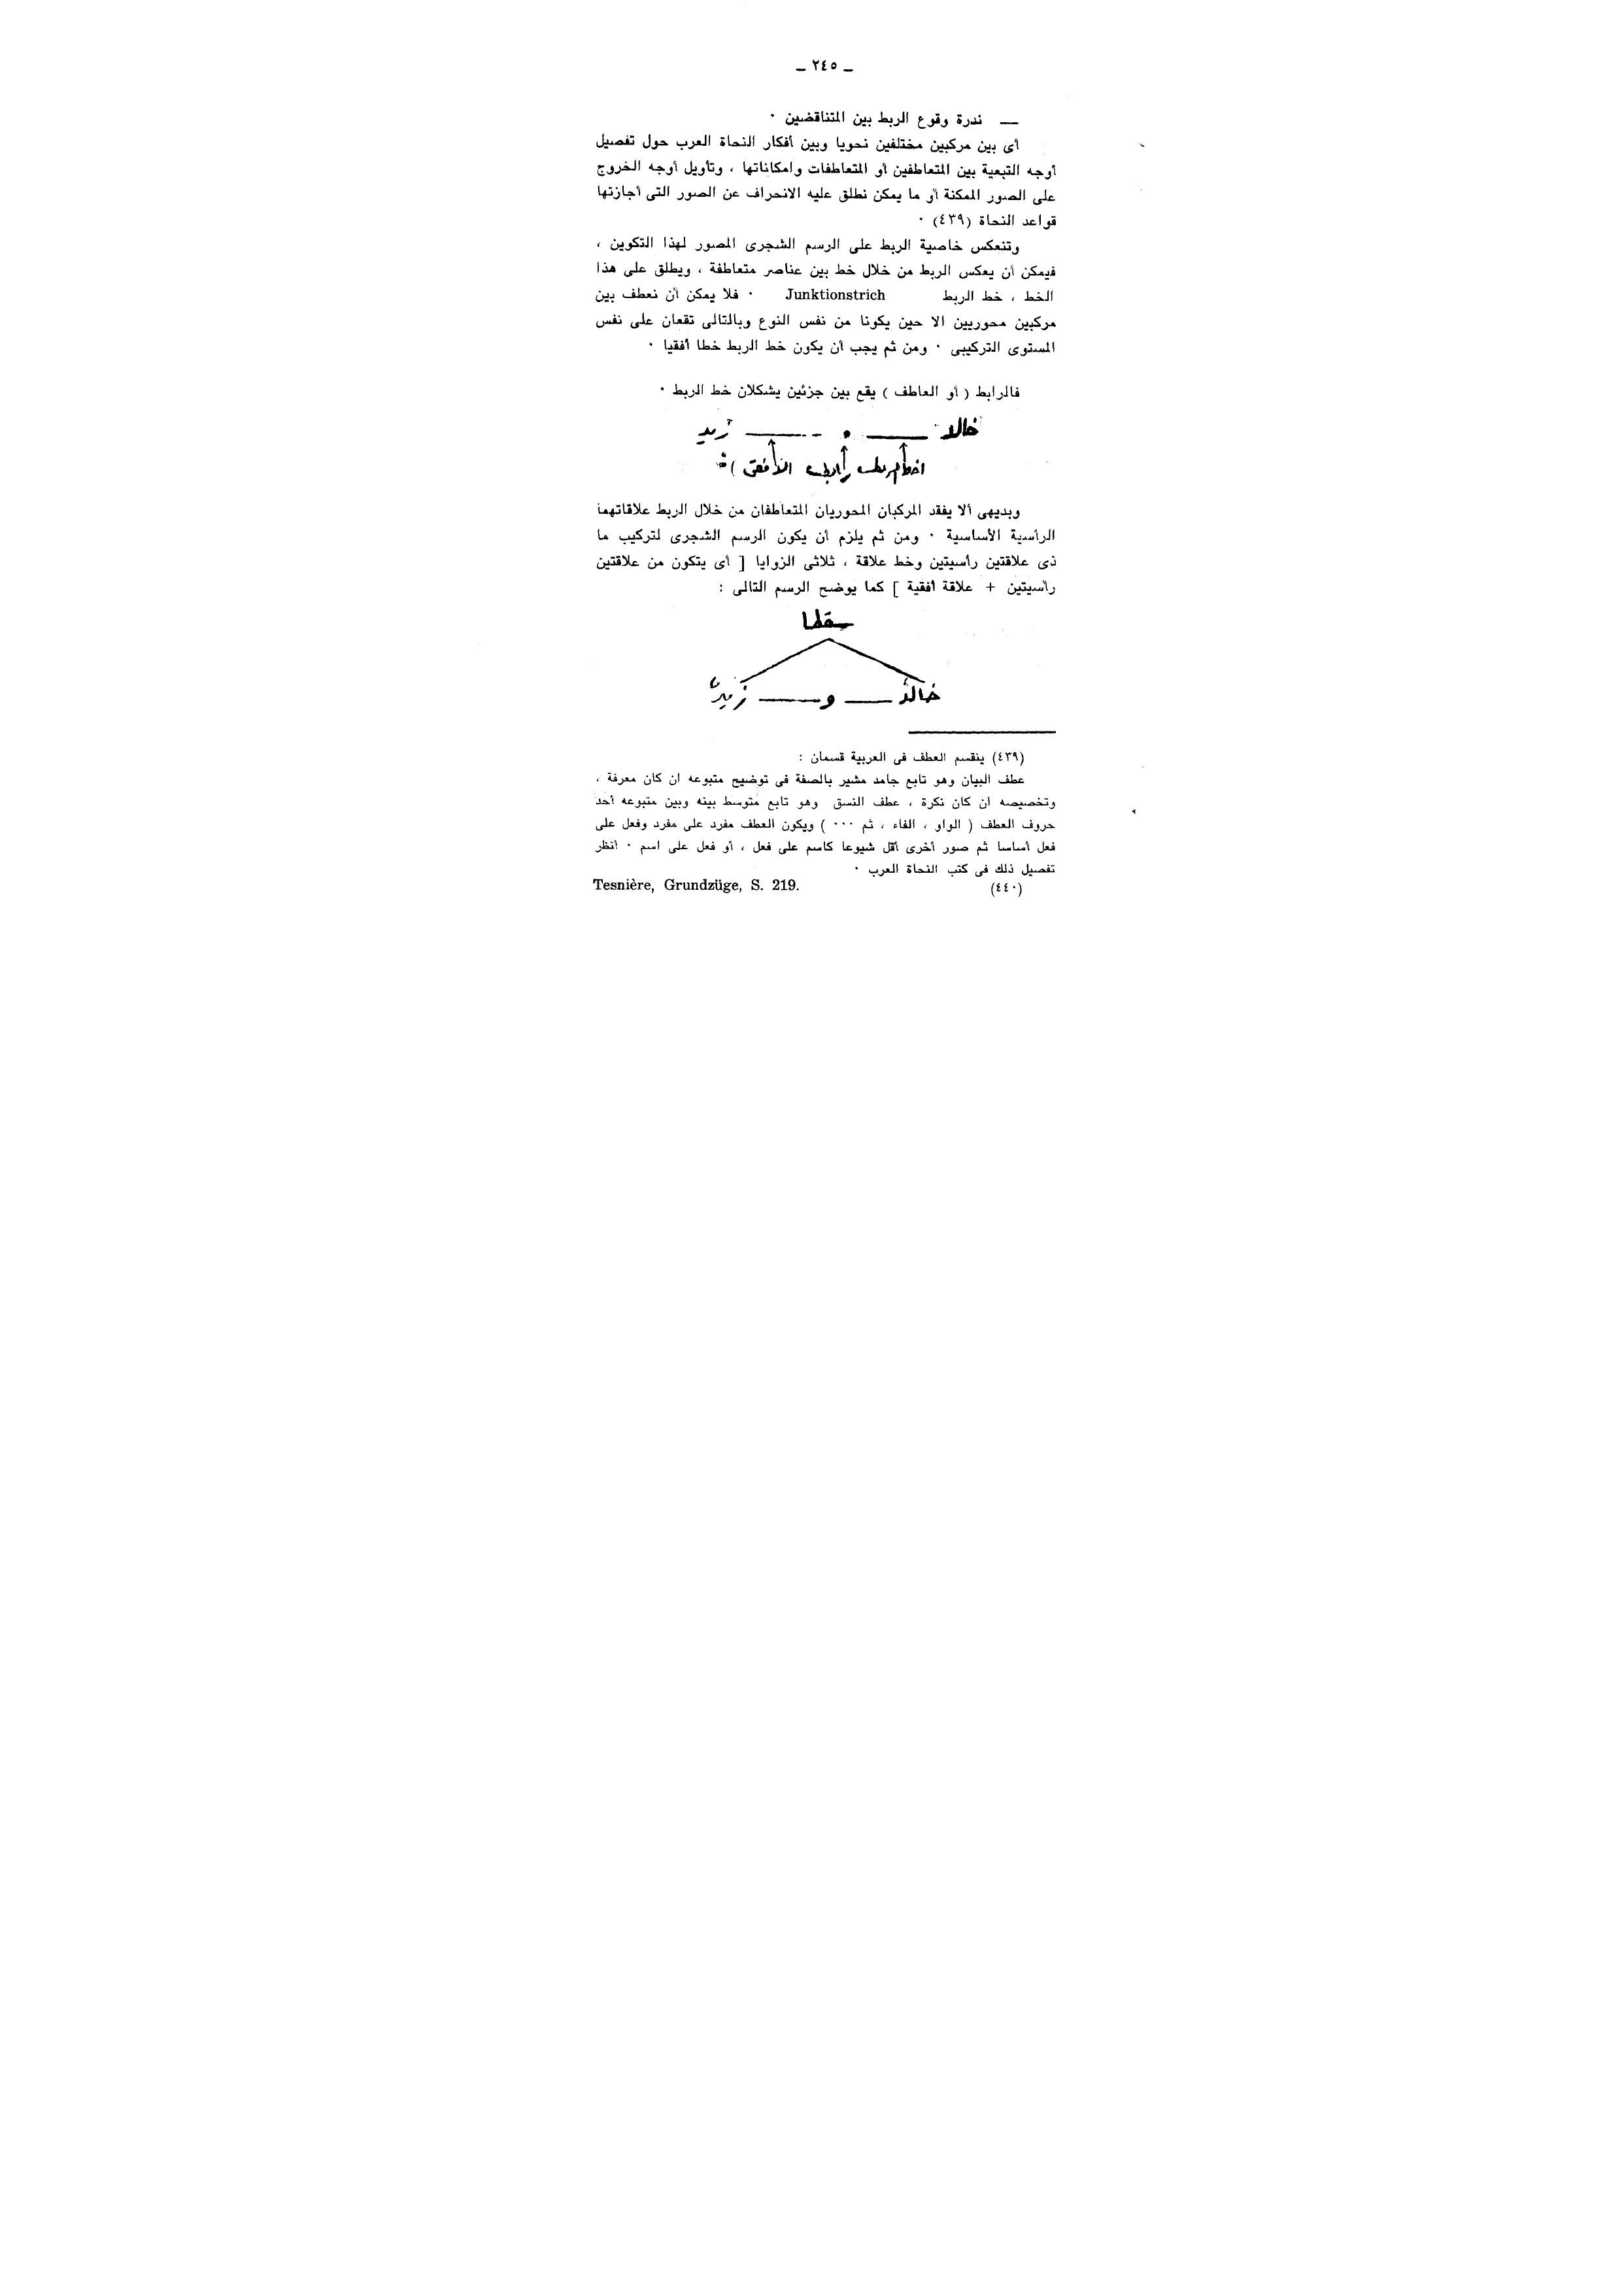 ـ ٢٤٥ ـ
— ندرة وقوع الربط بين المتناقضين ٠
أى بين مركبين مختلفين نحويا وبين أفكار النحاة العرب حول تفصيل
أوجه التبعية بين المتعاطفين أو المتعاطفات وامكاناتها ، وتأويل أوجه الخروج
على الصور الممكنة أو ما يمكن نطلق عليه الانحراف عن الصور التى أجازتها
قواعد النحاة (٤٣٩) ٠
وتنعكس خاصية الربط على الرسم الشجرى المصور لهذا التكوين ،
فيمكن أن يعكس الربط من خلال خط بين عناصر متعاطفة ، ويطلق على هذا
الخط ، خط الربط Junktionstrich ٠ فلا يمكن أن نعطف بين
مركبين محوريين الا حين يكونا من نفس النوع وبالتالى تقعان على نفس
المستوى التركيبى ٠ ومن ثم يجب أن يكون خط الربط خطا أفقيا ٠
فالرابط ( أو العاطف ) يقع بين جزئين يشكلان خط الربط ٠
خالد — و — زيد
وبديهى ألا يفقد المركبان المحوريان المتعاطفان من خلال الربط علاقاتهما
الرأسية الأساسية ٠ ومن ثم يلزم أن يكون الرسم الشجرى لتركيب ما
ذى علاقتين رأسيتين وخط علاقة ، ثلاثى الزوايا [ أى يتكون من علاقتين
رأسيتين + علاقة أفقية ] كما يوضح الرسم التالى :
سقطا
خالدٌ — و — زيدٌ
(٤٣٩) ينقسم العطف فى العربية قسمان :
عطف البيان وهو تابع جامد مشير بالصفة فى توضيح متبوعه ان كان معرفة ،
وتخصيصه ان كان نكرة ، عطف النسق وهو تابع متوسط بينه وبين متبوعه أحد
حروف العطف ( الواو ، الفاء ، ثم ٠٠٠ ) ويكون العطف مفرد على مفرد وفعل على
فعل أساسا ثم صور أخرى أقل شيوعا كاسم على فعل ، أو فعل على اسم ٠ أنظر
تفصيل ذلك فى كتب النحاة العرب ٠
(٤٤٠) Tesnière, Grundzüge, S. 219.